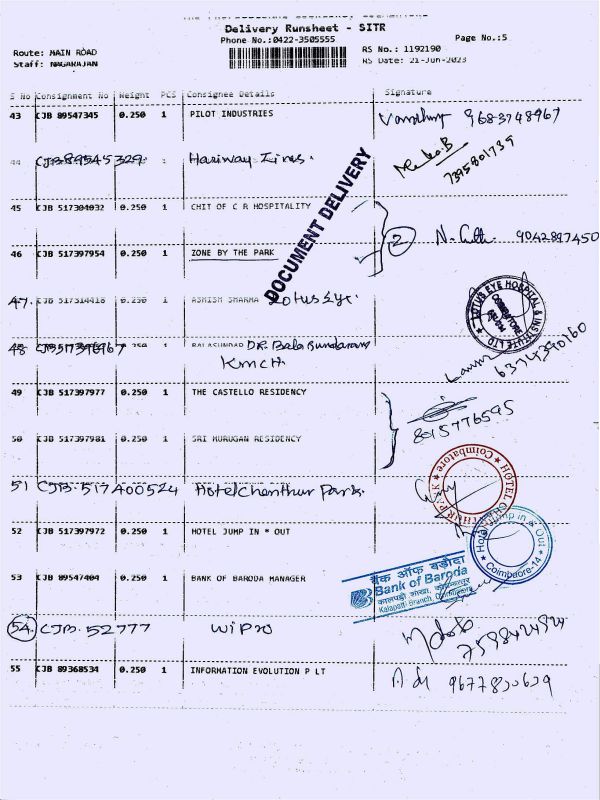 THE PROFESSIONAL COURIERS
Delivery Runsheet - SITR
Phone No.:0422-3505555
Page No.:5
Route: MAIN ROAD
Staff: NAGARAJAN
RS No.: 1192190
RS Date: 21-Jun-2023
S No Consignment No Weight PCS Consignee Details Signature
43 CJB 89547345 0.250 1 PILOT INDUSTRIES 9683748967
44 CJB89545329 Hariway Lines.
7395801739
DOCUMENT DELIVERY
45 CJB 517304032 0.250 1 CHIT OF C R HOSPITALITY
46 CJB 517397954 0.250 1 ZONE BY THE PARK 2 9042897450
47. CJB 517314418 0.250 1 ASHISH SHARMA Lotus Eye.
LOTUS EYE HOSPITAL & INSTITUTE LTD
COIMBATORE
6374390160
48 BALASUNDAR DR. Bala Sundaram
KMCH
49 CJB 517397977 0.250 1 THE CASTELLO RESIDENCY
8015776595
50 CJB 517397981 0.250 1 SRI MURUGAN RESIDENCY
51 CJB. 517400524 Hotel Chenthur Park.
Coimbatore
52 CJB 517397972 0.250 1 HOTEL JUMP IN * OUT
Hotel Jump in * Out
Coimbaore-14
53 CJB 89547404 0.250 1 BANK OF BARODA MANAGER
बैंक ऑफ बड़ौदा
Bank of Baroda
Kalapatti Branch,
54. CJB. 52777 WIPRO
7598424824
55 CJB 89368534 0.250 1 INFORMATION EVOLUTION P LT 9677820629